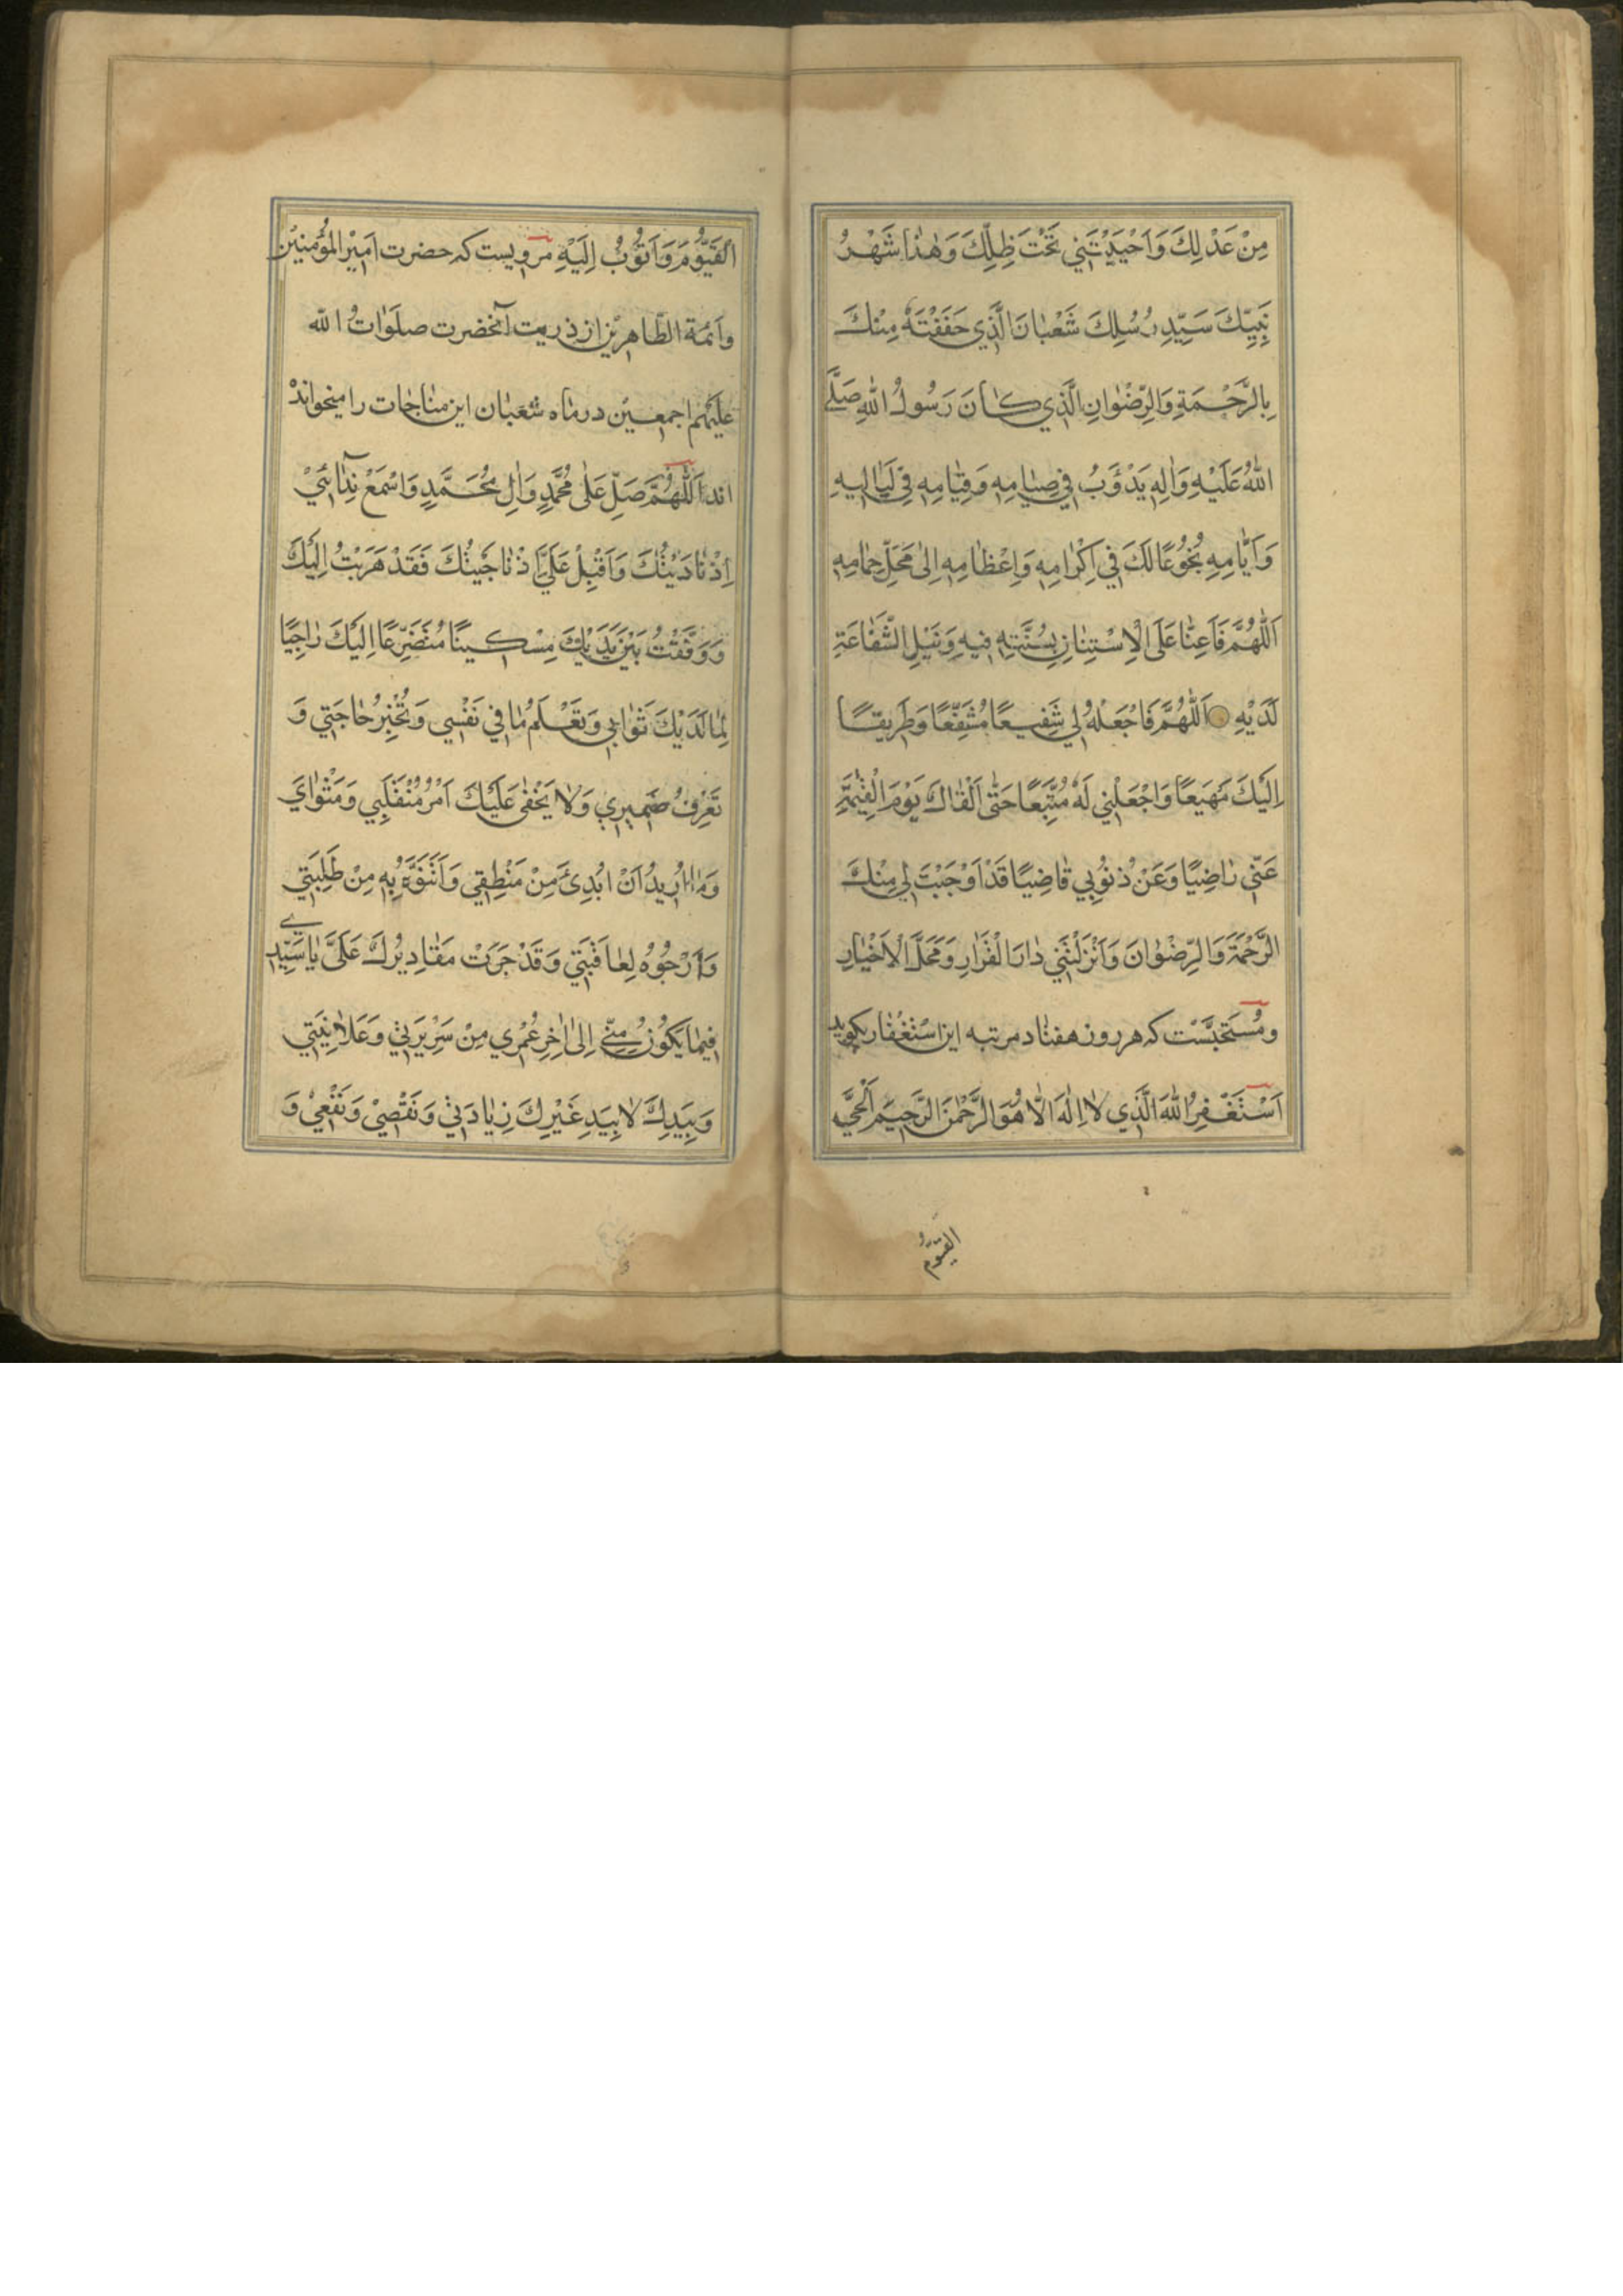 مِنْ عَدْلِكَ وَاَحْيَيْتَنِي تَحْتَ ظِلِّكَ وَهٰذٰا شَهْرُ
نَبِيِّكَ سَيِّدِ رُسُلِكَ شَعْبٰانَ الَّذِي حَفَفْتَهُ مِنْكَ
بِالرَّحْمَةِ وَالرِّضْوٰانِ الَّذِي كٰانَ رَسُولُ اللّٰهِ صَلَّى
اللّٰهُ عَلَيْهِ وَاٰلِهِ يَدْؤَبُ فِي صِيٰامِهِ وَقِيٰامِهِ فِي لَيٰالِيهِ
وَاَيّٰامِهِ بُخُوعًا لَكَ فِي اِكْرٰامِهِ وَاِعْظٰامِهِ اِلىٰ مَحَلِّ حِمٰامِهِ
اَللّٰهُمَّ فَاَعِنّٰا عَلَى الْاِسْتِنٰانِ بِسُنَّتِهِ فِيهِ وَنَيْلِ الشَّفٰاعَةِ
لَدَيْهِ اَللّٰهُمَّ فَاجْعَلْهُ لِي شَفِيعًا مُشَفَّعًا وَطَرِيقًا
اِلَيْكَ مَهْيَعًا وَاجْعَلْنِي لَهُ مُتَّبِعًا حَتّٰى اَلْقٰاكَ يَوْمَ الْقِيٰمَةِ
عَنّي رٰاضِيًا وَعَنْ ذُنُوبِي قٰاضِيًا قَدْ اَوْجَبْتَ لِي مِنْكَ
الرَّحْمَةَ وَالرِّضْوٰانَ وَاَنْزَلْتَنِي دٰارَ الْقَرٰارِ وَمَحَلَّ الْاَخْيٰارِ
ومُسْتَحَبَّسْت که هر روز هفتٰاد مرتبه این اسْتِغْفٰار بکوید
اَسْتَغْفِرُ اللّٰهَ الَّذِي لٰا اِلٰهَ اِلّٰا هُوَ الرَّحْمٰنَ الرَّحِيمَ اَلْحَيَّ
القیّوم
الْقَيُّومَ وَاَتُوبُ اِلَيْهِ مرویست که حضرت امِيْرالمؤمنينْ
واَئمّة الطّاهِرِيْن از ذریت آنحضرت صلَوٰاتُ اللّه
عَلَيْهِم اجمعیْن در مٰاه شعبٰان این منٰاجٰات را میخواندْ
اند اَللّٰهُمَّ صَلِّ عَلىٰ مُحَمَّدٍ وَاٰلِ مُحَمَّدٍ وَاسْمَعْ نِدٰائِيْ
اِذْ نٰادَيْتُكَ وَاَقْبِلْ عَلَيَّ اِذْ نٰاجَيْتُكَ فَقَدْ هَرَبْتُ اِلَيْكَ
وَوَقَفْتُ بَيْنَ يَدَيْكَ مِسْكِينًا مُتَضَرِّعًا اِلَيْكَ رٰاجِيًا
لِمٰا لَدَيْكَ ثَوٰابِي وَتَعْلَمُ مٰا فِي نَفْسِي وَتُخْبِرُ حٰاجَتِي وَ
تَعْرِفُ ضَمِيرِي وَلٰا يَخْفىٰ عَلَيْكَ اَمْرُ مُنْقَلَبِي وَمَثْوٰايَ
وَمٰا اُرِيدُ اَنْ ابُدِئَ مِنْ مَنْطِقِي وَاَتَفَوَّهَ بِهِ مِنْ طَلِبَتِي
وَاَرْجُوهُ لِعٰاقِبَتِي وَقَدْ جَرَتْ مَقٰادِيرُكَ عَلَيَّ يٰا سَيِّدِي
فِيمٰا يَكُونُ مِنّي اِلىٰ اٰخِرِ عُمْرِي مِنْ سَرِيرَتِي وَعَلاٰنِيَتِي
وَبِيَدِكَ لٰا بِيَدِ غَيْرِكَ زِيٰادَتِيْ وَنَقْصِيْ وَنَفْعِيْ وَ